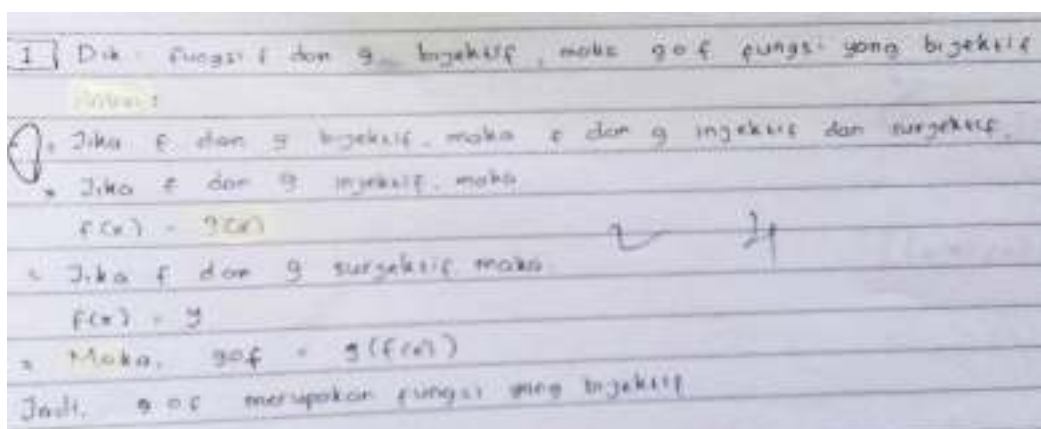 1 Dik : fungsi f dan g bijektif, maka gof fungsi yang bijektif
Jika f dan g bijektif, maka f dan g injektif dan surjektif.
Jika f dan g injektif, maka
f(x) = g(x)
Jika f dan g surjektif maka
f(x) = y
Maka, gof = g(f(x))
Jadi, gof merupakan fungsi yang bijektif